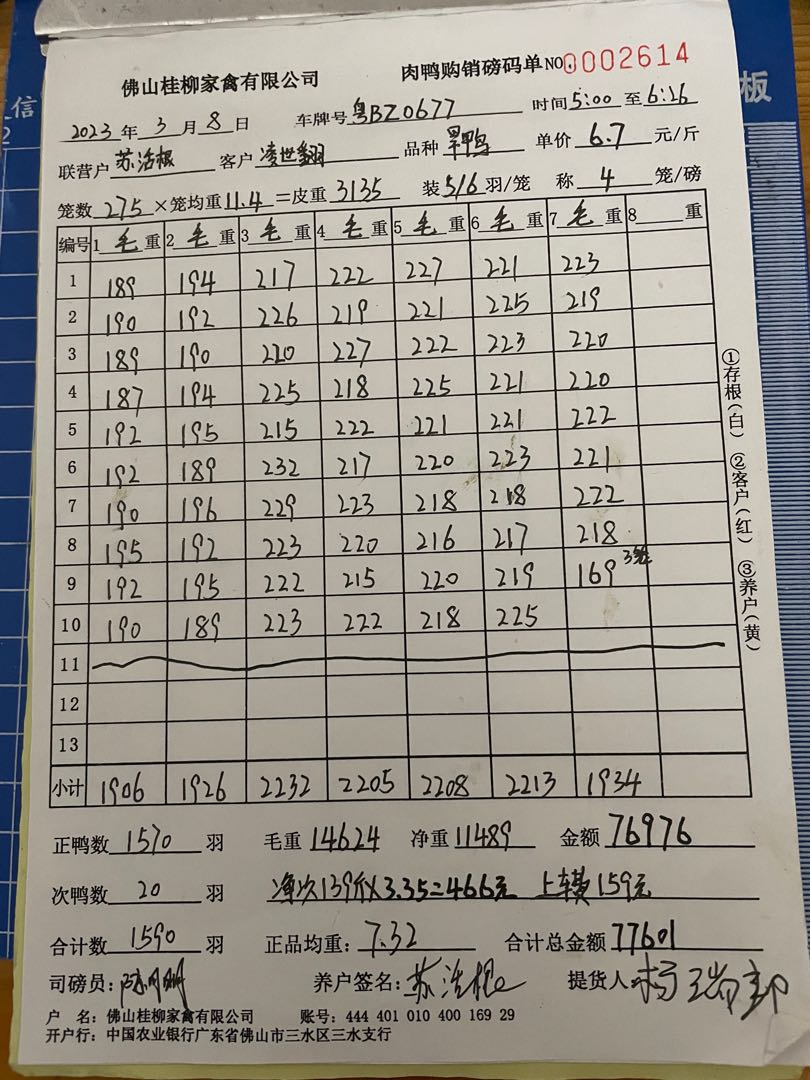 佛山桂柳家禽有限公司 肉鸭购销磅码单NO.0002614
2023年3月8日 车牌号粤BZ0677 时间5:00至6:26
联营户苏活根 客户凌世翻 品种旱鸭 单价6.7元/斤
笼数275×笼均重11.4=皮重3135 装5/6羽/笼 称4笼/磅
编号 1毛重 2毛重 3毛重 4毛重 5毛重 6毛重 7毛重 8重
1 189 194 217 222 227 221 223
2 190 192 226 219 221 225 219
3 189 190 220 227 222 223 220
4 187 194 225 218 225 221 220
5 192 195 215 222 221 221 222
6 192 189 232 217 220 223 221
7 190 196 229 223 218 218 222
8 195 192 223 220 216 217 218
9 192 195 222 215 220 219 169 3笼
10 190 189 223 222 218 225
11
12
13
小计 1906 1926 2232 2205 2208 2213 1934
正鸭数1570羽 毛重14624 净重11489 金额76976
次鸭数20羽 净次139斤×3.35=466元 上车费159元
合计数1590羽 正品均重:7.32 合计总金额77601
司磅员: 养户签名:苏活根 提货人:杨
户 名:佛山桂柳家禽有限公司 账号:444 401 010 400 169 29
开户行:中国农业银行广东省佛山市三水区三水支行
①存根(白) ②客户(红) ③养户(黄)
信
2
板